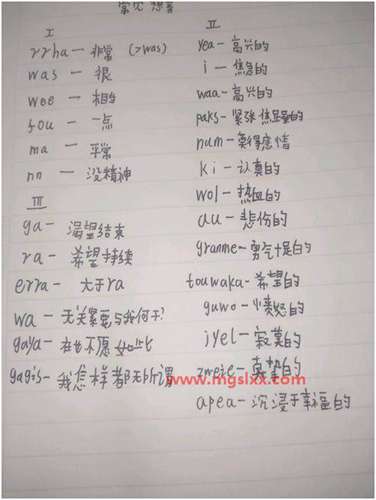 常见 想音
I
rrha — 非常 (>was)
was — 很
wee — 相当
fou — 一点
ma — 平常
nn — 没精神
III
ga — 渴望结束
ra — 希望持续
erra — 大于ra
wa — 无关紧要与我何干?
gaya — 不愿如此
gagis — 我怎样都无所谓
II
yea — 高兴的
i — 焦急的
waa — 高兴的
paks — 紧张
num — 莫得感情
ki — 认真的
wol — 热血的
au — 悲伤的
granme — 勇气十足的
touwaka — 希望的
guwo — 愤怒的
jyel — 寂寞的
zweie — 真挚的
apea — 沉浸于幸福的
www.mgslxx.com